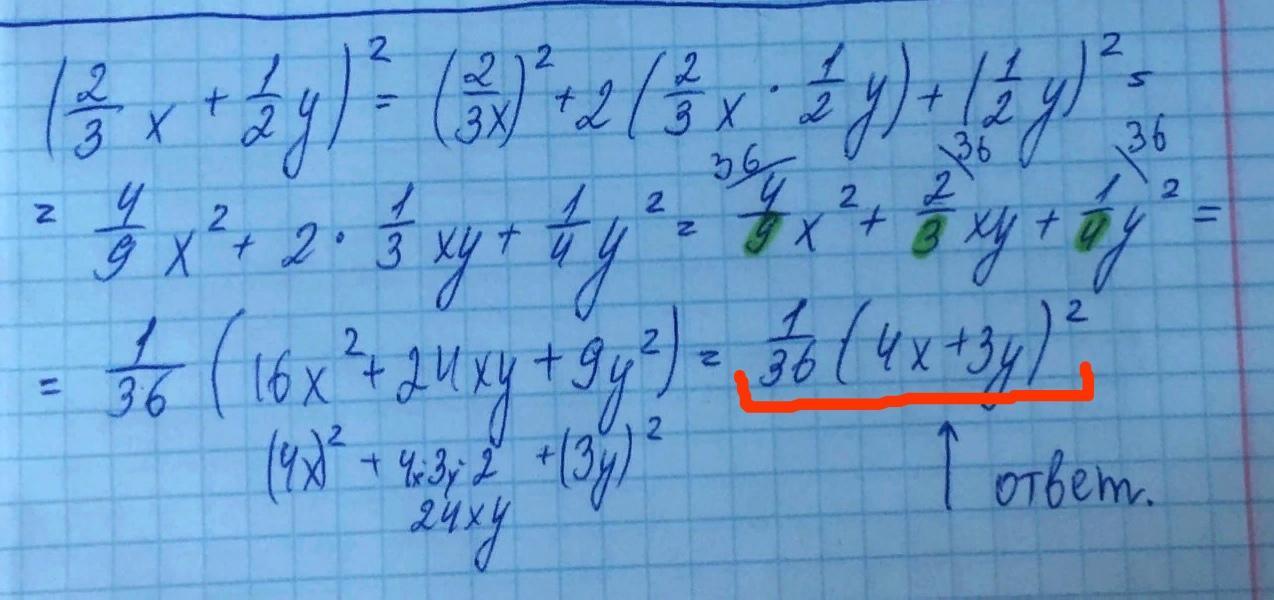 (2/3 x + 1/2 y)² = (2/3x)² + 2(2/3 x · 1/2 y) + (1/2 y)² =
= 4/9 x² + 2 · 1/3 xy + 1/4 y² = 36/ 4/9 x² + 2/3 \36 xy + 1/4 \36 y² =
= 1/36 (16x² + 24xy + 9y²) = 1/36 (4x + 3y)²
(4x)² + 4x·3y·2 + (3y)²
24xy
↑ ответ.